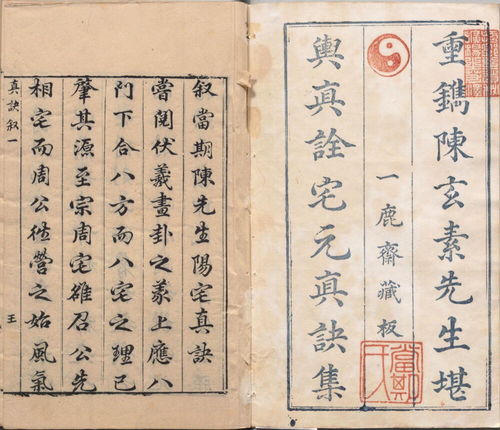 重鐫陳玄素先生堪
一鹿齋藏板
輿真詮宅元真訣集
當期
氏
叙當期陳先生陽宅真訣
嘗閱伏羲畫卦之象上應八
門下合八方而八宅之理已
肇其源至宗周宅雒召公先
相宅而周公徃營之始風氣
真訣叙一
王